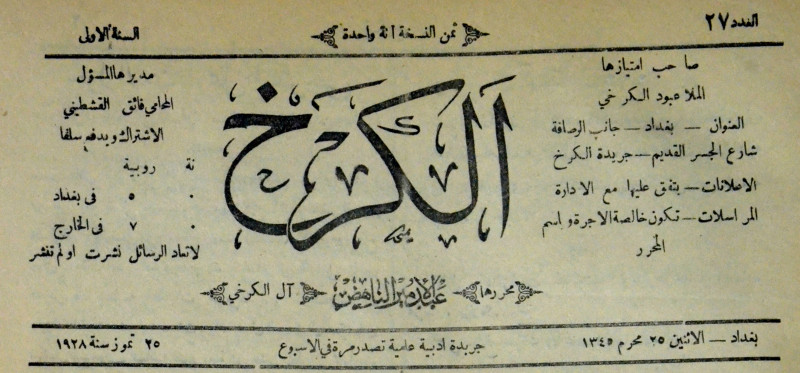 العدد ٢٧
ثمن النسخة آنة واحدة
السنة الاولى
صاحب امتيازها
الملا عبود الكرخي
العنوان — بغداد — جانب الرصافة
شارع الجسر القديم — جريدة الكرخ
الاعلانات — يتفق عليها مع الادارة
المراسلات — تكون خالصة الاجرة و باسم
المحرر
الكرخ
مديرها المسؤل
المحامي فائق القشطيني
الاشتراك ويدفع سلفا
نة روبية
٥ في بغداد
٧ في الخارج
لا تعاد الرسائل نشرت او لم تنشر
محررها
عبد الامير الناهض
آل الكرخي
بغداد — الاثنين ٢٥ محرم ١٣٤٥
جريدة ادبية عامية تصدر مرة في الاسبوع
٢٥ تموز سنة ١٩٢٨